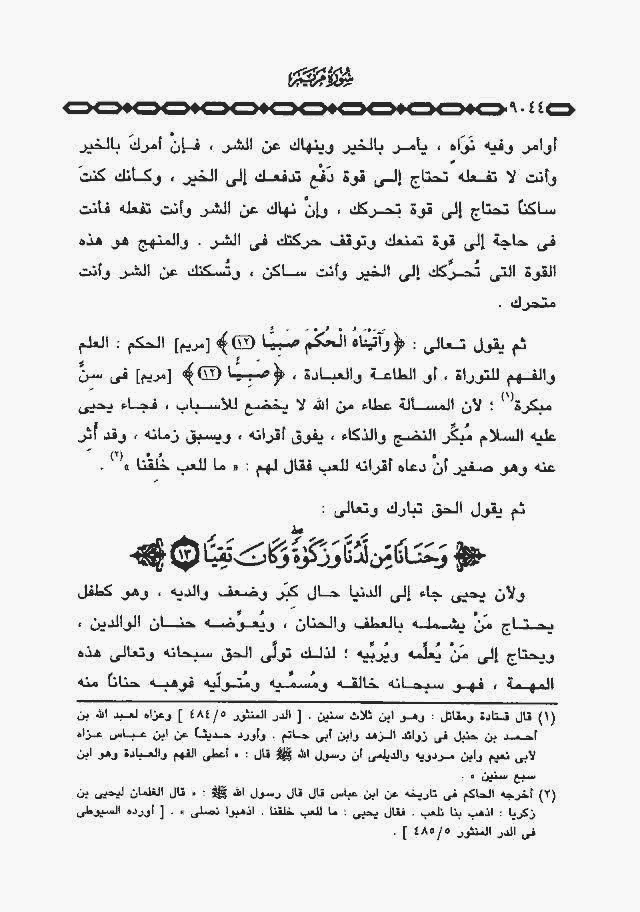 سُورَةُ مَرْيَمَ
٩٠٤٤
أوامر وفيه نَوَاهٍ ، يأمـر بالخير وينهاك عن الشر ، فـإنْ أمركَ بالخير
وأنت لا تفـعله تحتاج إلـى قوة دَفْع تدفعـك إلى الخير ، وكـأنك كنتَ
ساكناً تحتاج إلى قوة تحركك ، وإنْ نهاك عن الشر وأنت تفعله فأنت
فى حاجة إلى قوة تمنعك وتوقف حركتك فى الشر . والمنهج هو هذه
القوة التى تُحرِّكك إلى الخير وأنت ساكن ، وتُسكنك عن الشر وأنت
متحرك .
ثم يقول تعالى : ﴿ وَآتَيْنَاهُ الْحُكْمَ صَبِيًّا (١٢) ﴾ [مريم] الحكم : العلم
والفـهم للتوراة ، أو الطاعة والعبادة ، ﴿ صَبِيًّا (١٢) ﴾ [مريم] فى سِنٍّ
مبكرة(١) ؛ لأن المسـألة عطاء من الله لا يخضع للأسـباب ، فجـاء يحيى
عليه السلام مُبكِّر النضج والذكاء ، يفوق أقرانه ، ويسبق زمانه ، وقد أُثِر
عنه وهو صغير أنْ دعاه أقرانه للعب فقال لهم : « ما للعب خُلِقْنا »(٢) .
ثم يقول الحق تبارك وتعالى :
﴿ وَحَنَانًا مِّن لَّدُنَّا وَزَكَوٰةً ۖ وَكَانَ تَقِيًّا ١٣ ﴾
ولأن يحيى جاء إلى الدنيا حـال كِبَر وضعف والديه ، وهو كطفل
يحتـاج مَنْ يشملـه بالعطف والحنان ، ويُعـوِّضـه حنـان الوالدين ،
ويحتاج إلى مَنْ يُعلِّمه ويُربِّيه ؛ لذلك تولَّى الحق سبحانه وتعالى هذه
المهمة ، فهـو سبحـانه خالقـه ومُسمِّـيه ومُتـولِّيه فوهبـه حناناً منه
(١) قال قتادة ومقاتل : وهو ابن ثلاث سنين . [ الدر المنثور ٤٨٤/٥ ] وعزاه لعبد الله بن
أحمـد بن حنبل فى زوائد الزهد وابن أبى حاتم . وأورد حديثـاً عن ابن عبـاس عزاه
لأبى نعيم وابن مردويه والديلمى أن رسول الله ﷺ قال : « أعطى الفهم والعبادة وهو ابن
سبع سنين » .
(٢) أخرجه الحاكم فى تاريخه عن ابن عباس قال قال رسول الله ﷺ : « قال الغلمان ليحيى بن
زكريا : اذهب بنا نلعب . فقال يحيى : ما للعب خلقنا . اذهبوا نصلى » . [ أورده السيوطى
فى الدر المنثور ٤٨٥/٥ ] .